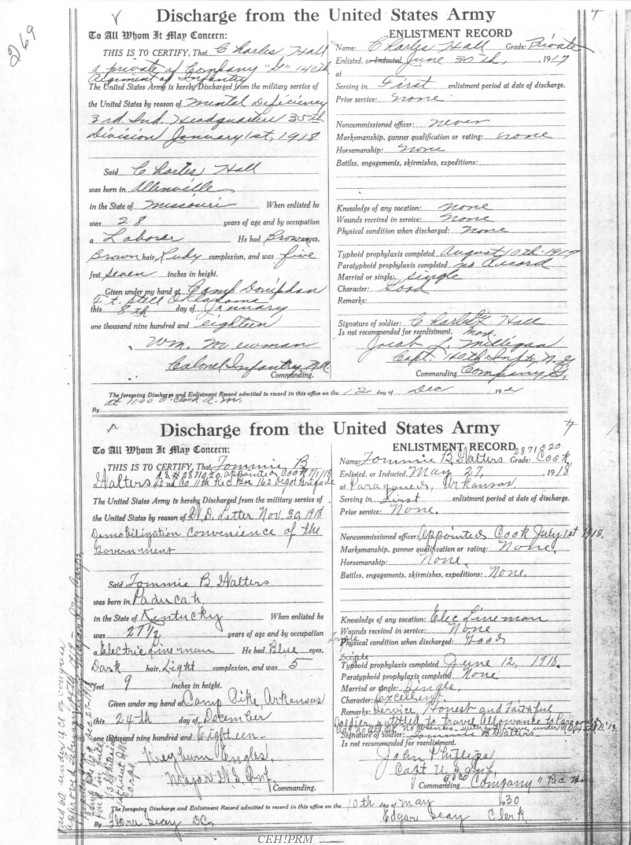 269
Discharge from the United States Army
To All Whom It May Concern:
THIS IS TO CERTIFY, That Charles Hall
a private of Company "G" 140th
Regiment of Infantry
The United States Army is hereby Discharged from the military service of
the United States by reason of Mental Deficiency
3rd Ind. Headquarter 35th
Division January 1st, 1918
Said Charles Hall
was born in Allenville
in the State of Missouri When enlisted he
was 28 years of age and by occupation
a Laborer He had Brown eyes,
Brown hair, Ruby complexion, and was five
feet seven inches in height.
Given under my hand at Camp Doniphan
Ft. Sill Oklahoma
this 8th day of January
one thousand nine hundred and eighteen
Wm. M. Newman
Colonel Infantry N.A.
Commanding.
ENLISTMENT RECORD
Name: Charles Hall Grade: Private
Enlisted, or Inducted, June 30th, 1917
at
Serving in First enlistment period at date of discharge.
Prior service: none
Noncommissioned officer: never
Marksmanship, gunner qualification or rating: none
Horsemanship: none
Battles, engagements, skirmishes, expeditions:
Knowledge of any vocation: None
Wounds received in service: None
Physical condition when discharged: None
Typhoid prophylaxis completed August 10th-1917
Paratyphoid prophylaxis completed no Record
Married or single: single
Character: Good
Remarks:
Signature of soldier: Charles Hall
Is not recommended for reenlistment.
Jacob L. Milligan
Capt. 140th Inft. N.G.
Commanding Company G.
The foregoing Discharge and Enlistment Record admitted to record in this office on the 12 day of Dec 192
at 11:00 O'clock A.M.
By
Discharge from the United States Army
To All Whom It May Concern:
THIS IS TO CERTIFY, That Tommie B
Walters 2871020 appointed Cook 7/1/18
Co 11th Rec Bn 162 Depot Brigade
The United States Army is hereby Discharged from the military service of
the United States by reason of W.D. Letter Nov. 30 1918
Demobilization Convenience of the
Government
Said Tommie B Walters
was born in Paducah
in the State of Kentucky When enlisted he
was 27½ years of age and by occupation
a Electric Lineman He had Blue eyes,
Dark hair, Light complexion, and was 5
feet 9 inches in height.
Given under my hand at Camp Pike, Arkansas
this 24th day of December
one thousand nine hundred and Eighteen
Major U.S. Inf.
Commanding.
ENLISTMENT RECORD
2871020
Name: Tommie B Walters Grade: Cook
Enlisted, or Inducted, May 27, 1918
at Paragould, Arkansas
Serving in First enlistment period at date of discharge.
Prior service: None.
Noncommissioned officer: Appointed Cook July 1st 1918.
Marksmanship, gunner qualification or rating: None
Horsemanship: None.
Battles, engagements, skirmishes, expeditions: None.
Knowledge of any vocation: Elec Lineman
Wounds received in service: None
Physical condition when discharged: Good
Typhoid prophylaxis completed June 12, 1918.
Paratyphoid prophylaxis completed None
Married or single: Single.
Character: Excellent
Remarks: Service, Honest and Faithful
Soldier entitled to travel Allowance to
Signature of soldier: Tommie B Walters
Is not recommended for reenlistment.
John Phillips
Capt U.S. Inf.
Commanding Company
The foregoing Discharge and Enlistment Record admitted to record in this office on the 10th day of May 1930
By Flora Seay DC. Edgar Seay Clerk
CEH!PRM